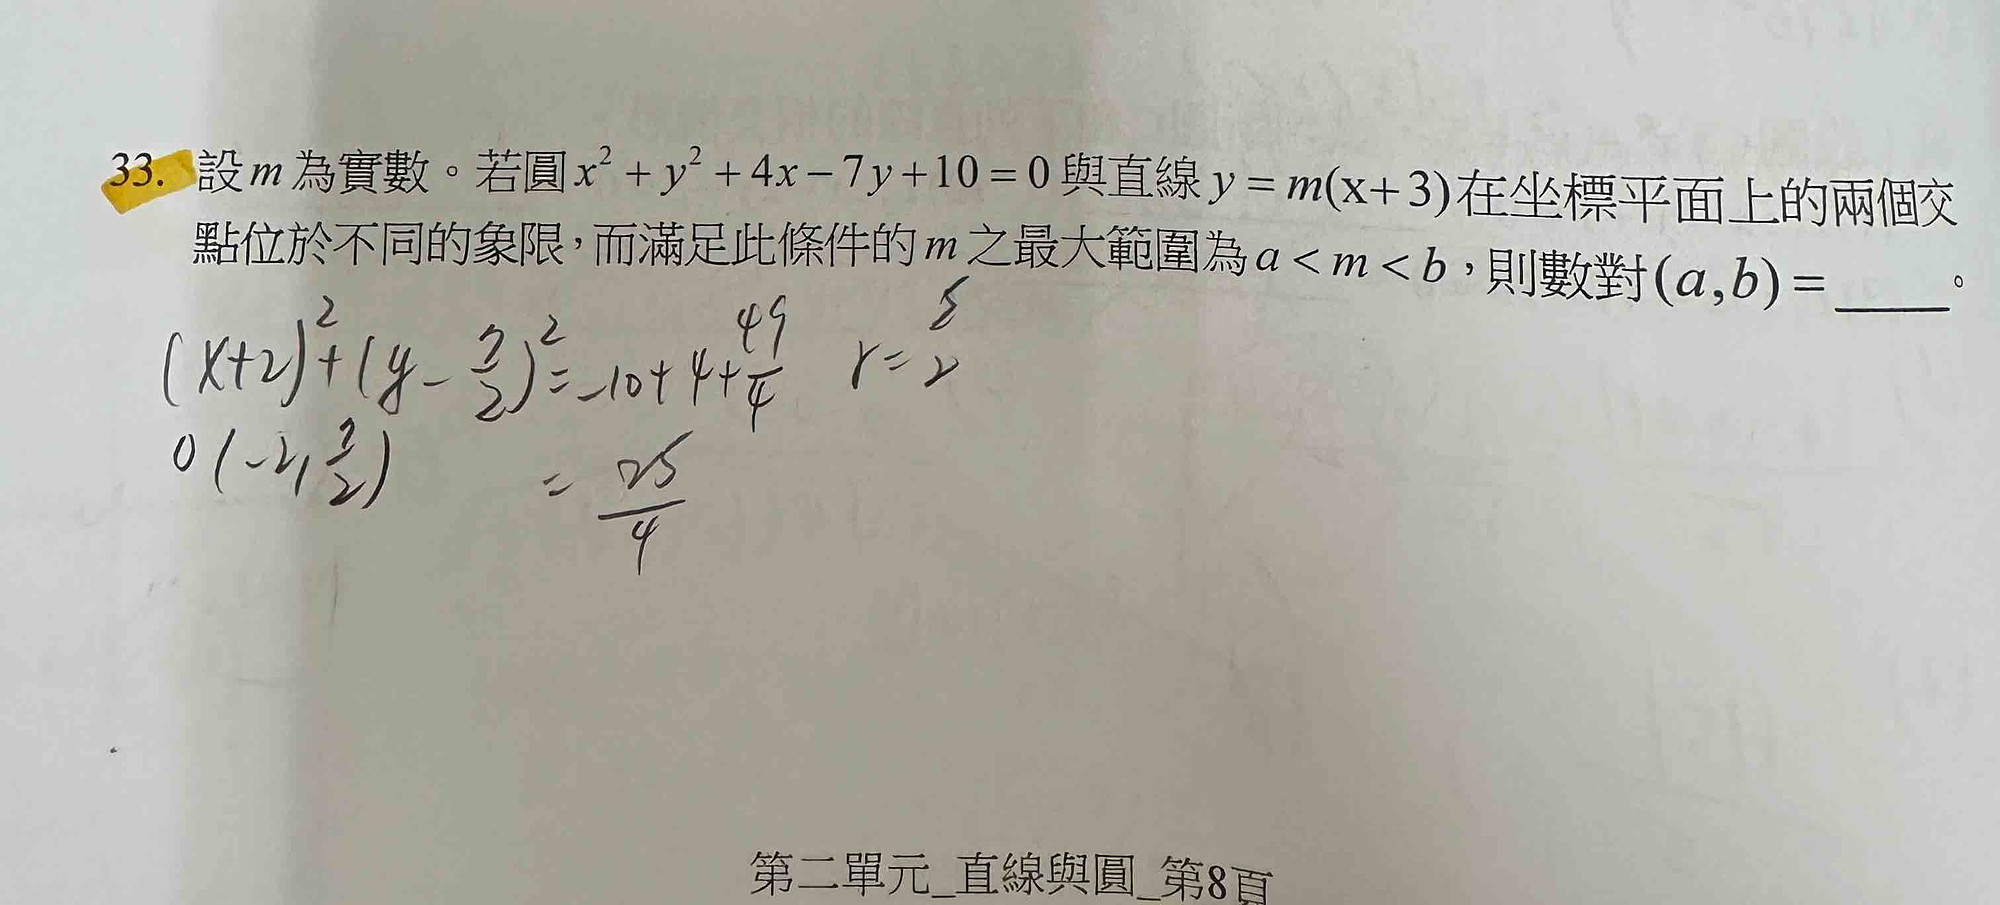 33. 設m為實數。若圓x²+y²+4x-7y+10=0與直線y=m(x+3)在坐標平面上的兩個交
點位於不同的象限,而滿足此條件的m之最大範圍為a<m<b,則數對(a,b)=____。
(x+2)²+(y-7/2)²=-10+4+49/4 r=5/2
O(-2,7/2) =25/4
第二單元_直線與圓_第8頁